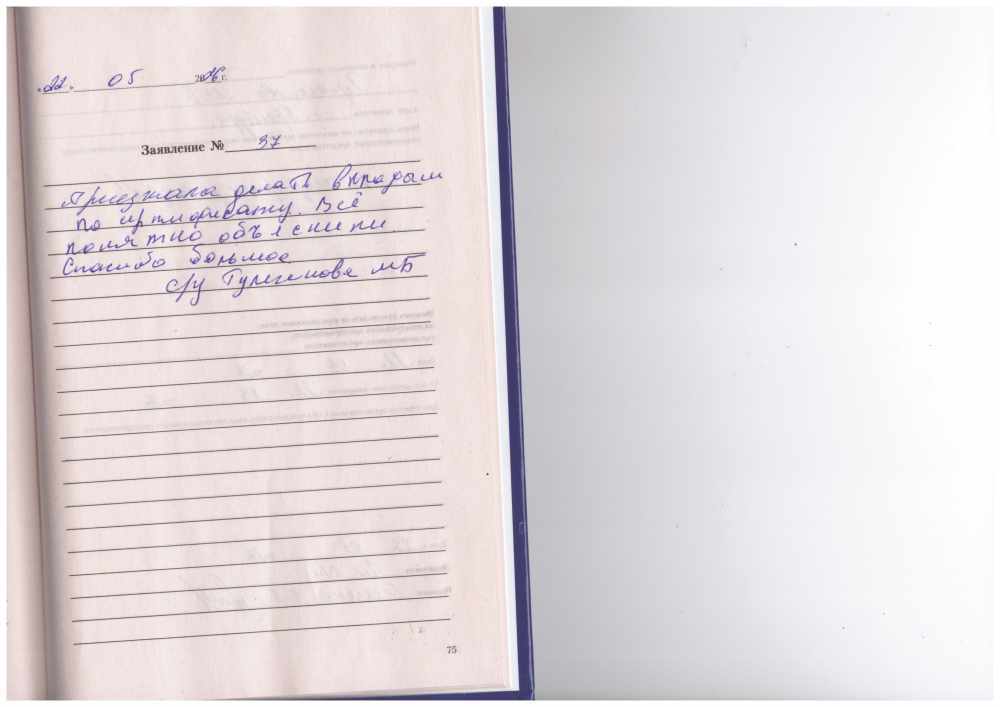 "22" 05 2026 г.
Заявление № 37
Приезжала делать
по сертификату. Всё
понятно объяснили.
Спасибо большое
с/у Тулегенова МБ
75